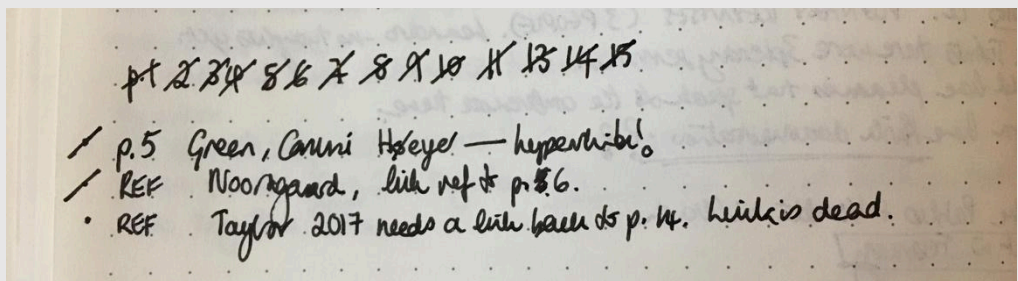 p1 2 3 4 5 6 7 8 9 10 11 13 14 15
p.5 Green, Canini Høeyer — hyperlink!
REF Noorgaard, link ref to p. 6.
REF Taylor 2017 needs a link back to p. 14. Link is dead.